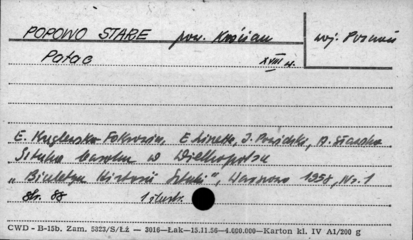 POPOWO STARE pow. Kościan woj. Poznań
Pałac XVIII w.
E. Linette, A. Sławska
Sztuka baroku w Wielkopolsce
„Biuletyn Historii Sztuki", Warszawa 1958, Nr. 1
Str. 88 1 ilustr.
CWD - B-15b. Zam. 5323/S/Łż — 3016—Łak—15.11.56—4.600.000—Karton kl. IV A1/200 g